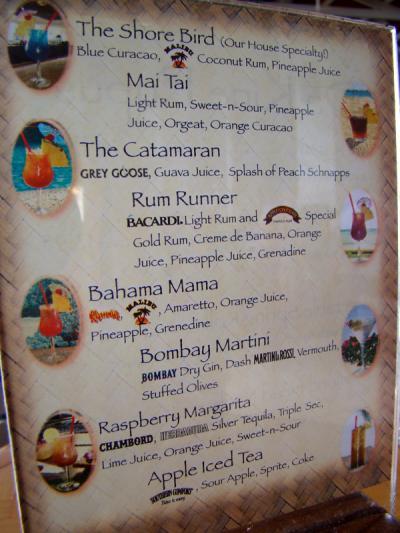 The Shore Bird (Our House Specialty!)
Blue Curacao, MALIBU Coconut Rum, Pineapple Juice
Mai Tai
Light Rum, Sweet-n-Sour, Pineapple
Juice, Orgeat, Orange Curacao
The Catamaran
GREY GOOSE, Guava Juice, Splash of Peach Schnapps
Rum Runner
BACARDI Light Rum and Special
Gold Rum, Creme de Banana, Orange
Juice, Pineapple Juice, Grenadine
Bahama Mama
MALIBU, Amaretto, Orange Juice,
Pineapple, Grenedine
Bombay Martini
BOMBAY Dry Gin, Dash MARTINI & ROSSI Vermouth,
Stuffed Olives
Raspberry Margarita
CHAMBORD, HERRADURA Silver Tequila, Triple Sec,
Lime Juice, Orange Juice, Sweet-n-Sour
Apple Iced Tea
SOUTHERN COMFORT, Sour Apple, Sprite, Coke